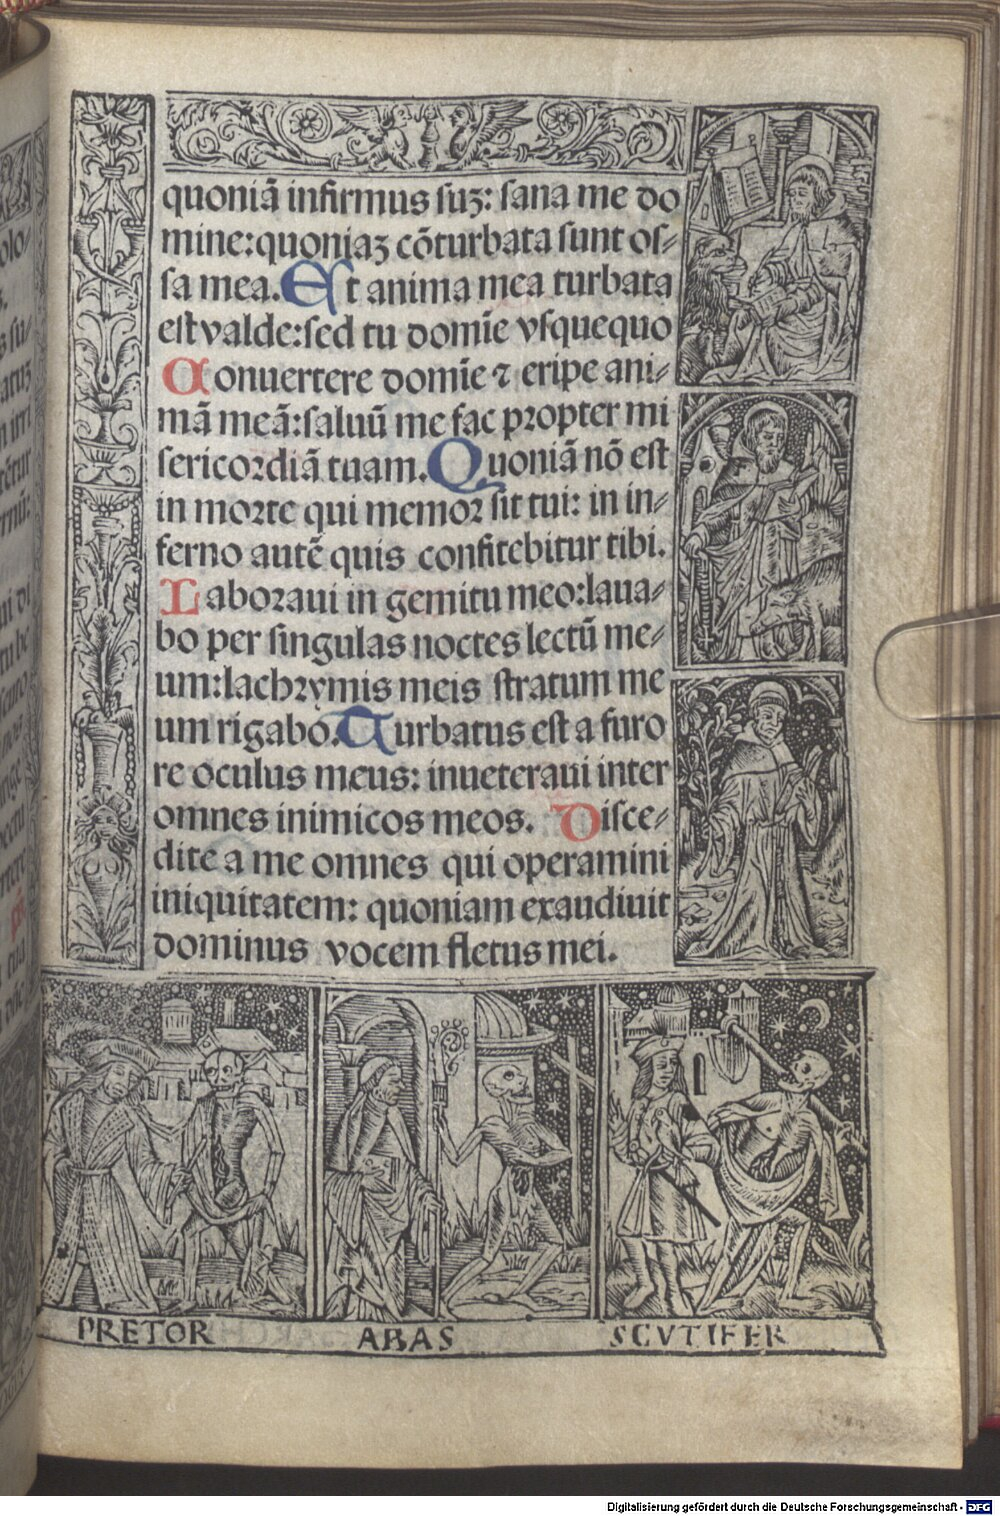 quoniā infirmus suꝫ: sana me do
mine:quoniaꝫ cōturbata sunt os⸗
sa mea. Et anima mea turbata
est valde:sed tu domīe vsquequo
Conuertere domīe ⁊ eripe ani⸗
mā meā:saluū me fac propter mi
sericordiā tuam. Quoniā nō est
in morte qui memor sit tui: in in⸗
ferno autē quis confitebitur tibi.
Laboraui in gemitu meo:laua⸗
bo per singulas noctes lectū me⸗
um:lachrymis meis stratum me
um rigabo. Turbatus est a furo
re oculus meus: inueteraui inter
omnes inimicos meos. Disce⸗
dite a me omnes qui operamini
iniquitatem: quoniam exaudiuit
dominus vocem fletus mei.
PRETOR ABAS SCVTIFER
Digitalisierung gefördert durch die Deutsche Forschungsgemeinschaft - DFG